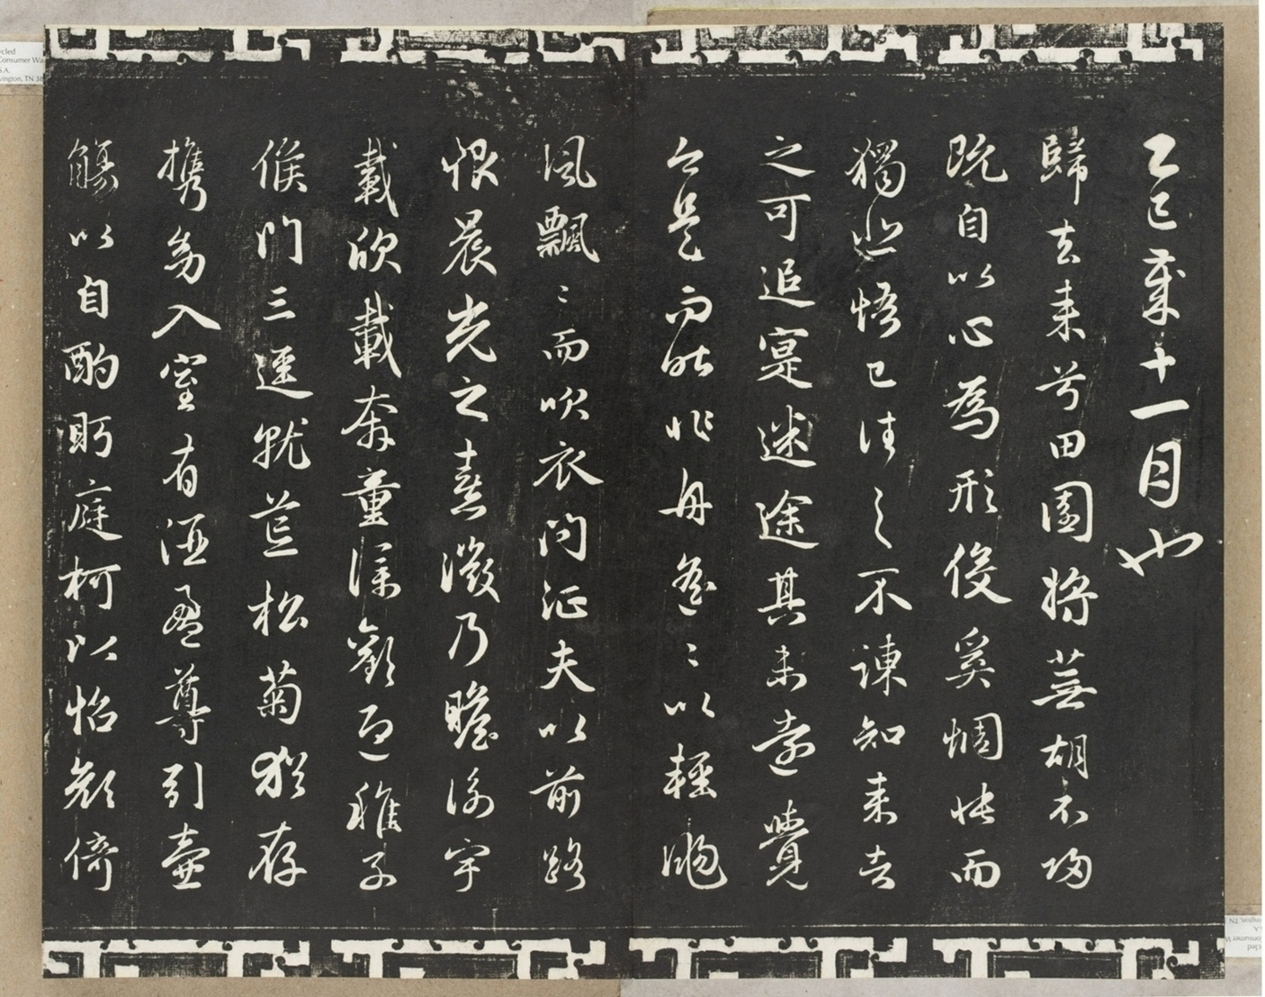 乙巳歲十一月也
歸去来兮田園將蕪胡不歸
既自以心為形役奚惆悵而
獨悲悟已往之不諫知来者
之可追寔迷途其未遠覺
今是而昨非舟遥〻以輕颺
風飄〻而吹衣問征夫以前路
恨晨光之熹微乃瞻衡宇
載欣載奔童僕歡迎稚子
候門三逕就荒松菊猶存
携幼入室有酒盈尊引壺
觴以自酌眄庭柯以怡顔倚
Consumer Wa
TN 38